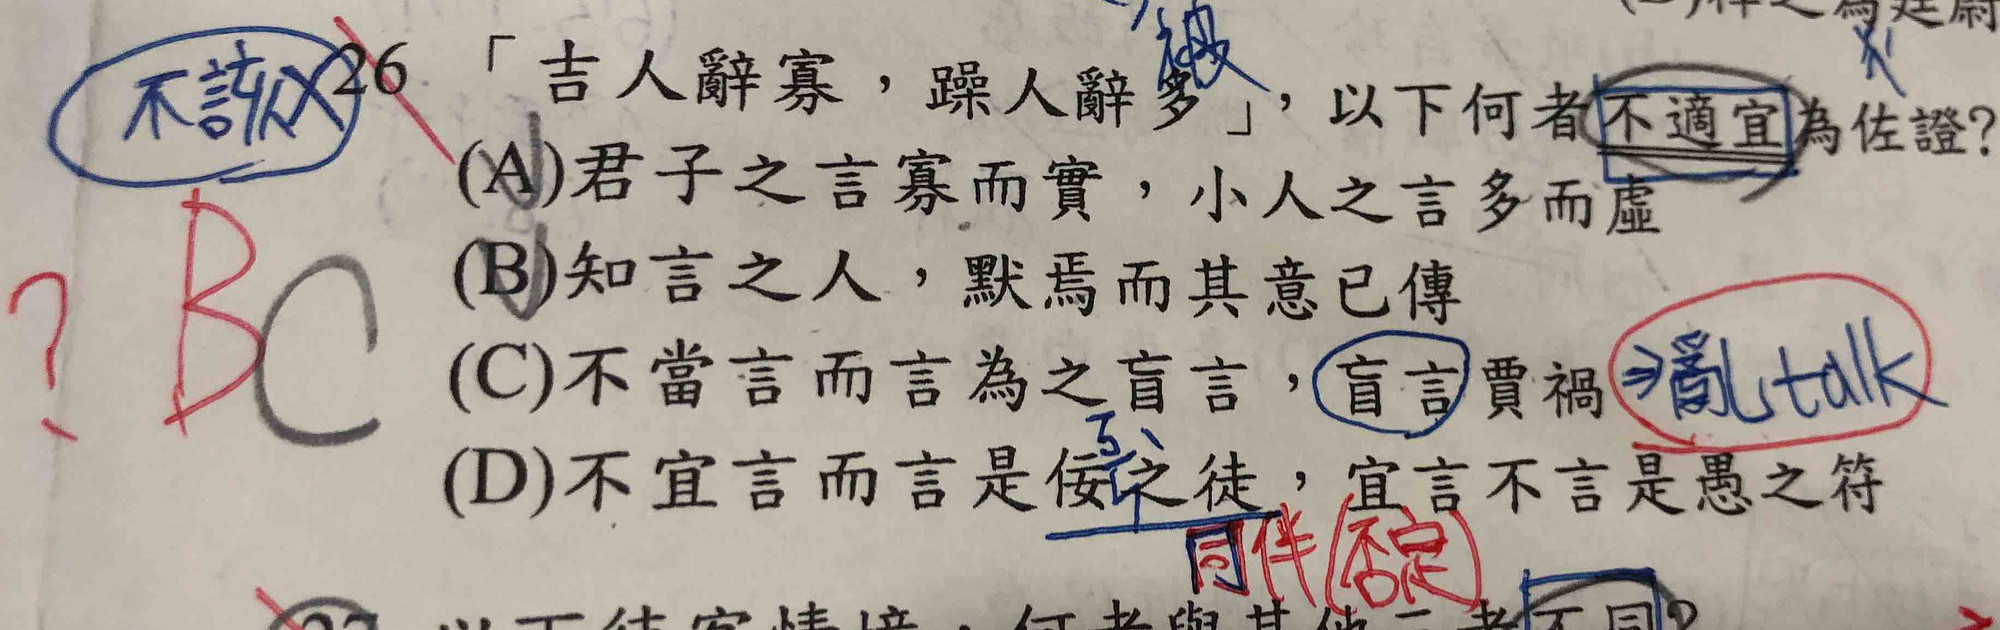 不該又
26 「吉人辭寡，躁人辭多」，以下何者不適宜為佐證?
(A)君子之言寡而實，小人之言多而虛
(B)知言之人，默焉而其意已傳
? B C
(C)不當言而言為之盲言，盲言賈禍 ⇒亂talk
(D)不宜言而言是佞之徒，宜言不言是愚之符
同伴(否定)
27 以下待客情境，何者與其他三者不同?